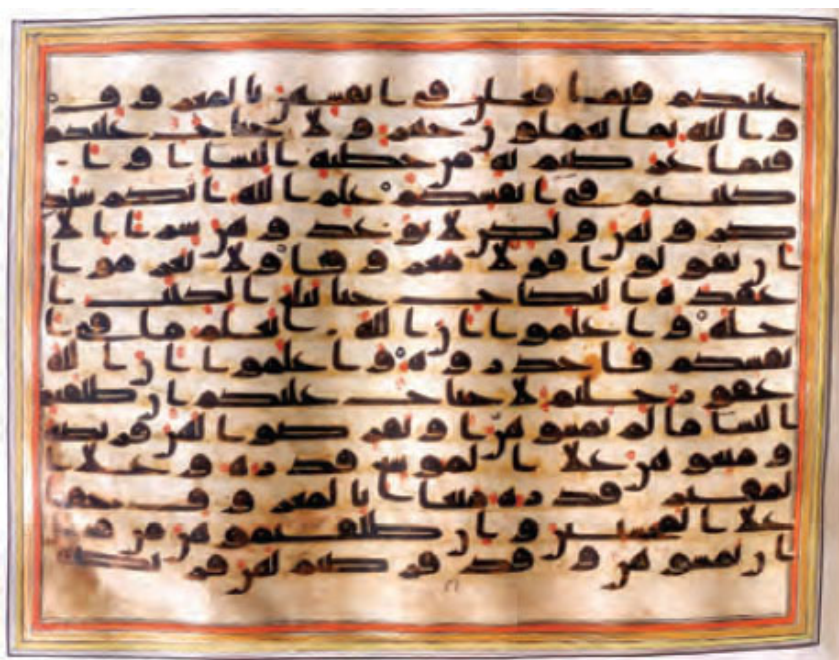 عليكم فيما فعلن في انفسهن بالمعروف
والله بما تعملون خبير ولا جناح عليكم
فيما عرضتم به من خطبه النسا او ا
كننتم في انفسكم علم الله انكم ستذ
كرونهن ولكن لا تواعدوهن سرا الا
ان تقولوا قولا معروفا ولا تعزموا
عقده النكاح حتى يبلغ الكتب ا
جله واعلموا ان الله يعلم ما في ا
نفسكم فاحذروه واعلموا ان الله
غفور حليم لا جناح عليكم ان طلقتم
النسا ما لم تمسوهن او تفرضوا لهن فريضه
ومتعوهن على الموسع قدره وعلى ا
لمقتر قدره متاعا بالمعروف حقا
على المحسنين وان طلقتموهن من قبل
ان تمسوهن وقد فرضتم لهن فريضه